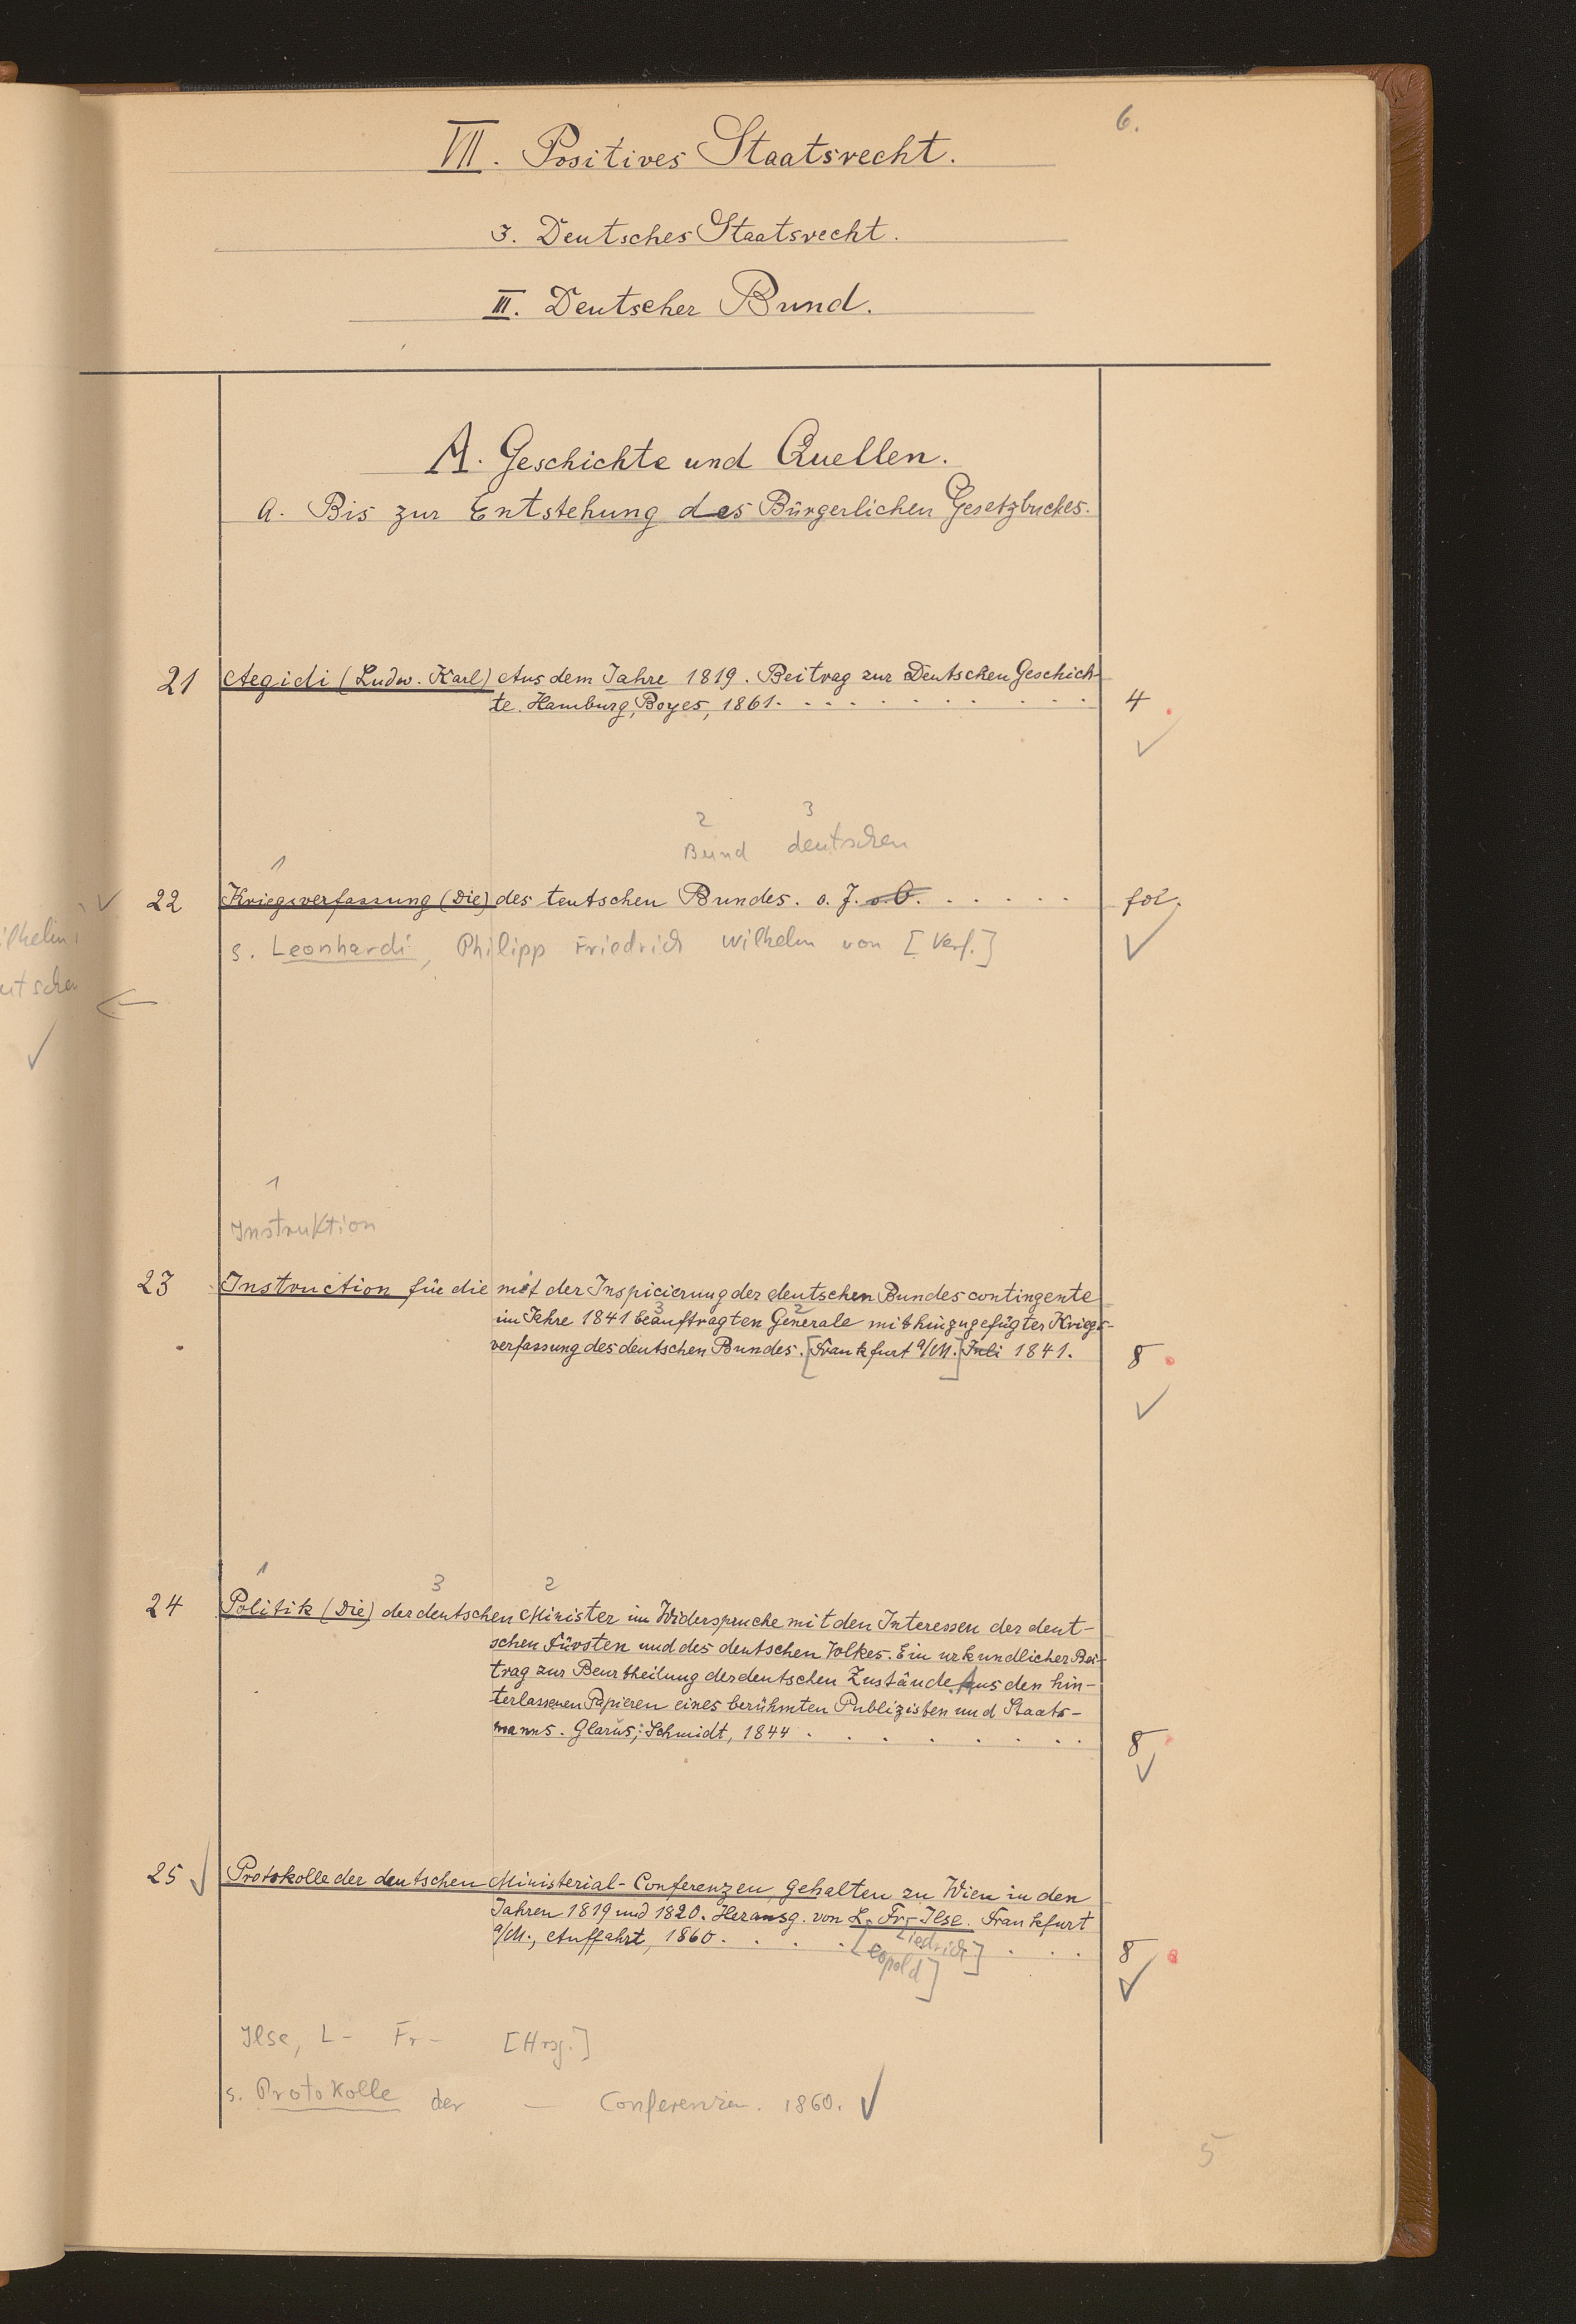 6.
VII. Positives Staatsrecht.
3. Deutsches Staatsrecht.
III. Deutscher Bund.
A. Geschichte und Quellen.
a. Bis zur Entstehung des Bürgerlichen Gesetzbuches.
21 Aegidi (Ludw. Karl) Aus dem Jahre 1819. Beitrag zur Deutschen Geschich-
te. Hamburg, Boyes, 1861. 4
2 3
Bund deutschen
1
22 Kriegsverfassung (Die) des teutschen Bundes. o. J. o. O. fol.
s. Leonhardi, Philipp Friedrich Wilhelm von [Verf.]
1
Instruktion
23 Instruction für die mit der Inspicierung der deutschen Bundescontingente
3 2
im Jahre 1841 beauftragten Generale mit hinzugefügter Kriegs-
verfassung des deutschen Bundes. [Frankfurt a/M.] Juli 1841. 8
1 3 2
24 Politik (Die) der deutschen Minister im Widerspruche mit den Interessen der deut-
schen Fürsten und des deutschen Volkes. Ein urkundlicher Bei-
trag zur Beurtheilung der deutschen Zustände. Aus den hin-
terlassenen Papieren eines berühmten Publizisten und Staats-
manns. Glarus, Schmidt, 1844 8
25 Protokolle der deutschen Ministerial-Conferenzen, gehalten zu Wien in den
Jahren 1819 und 1820. Herausg. von L. Fr. Ilse. Frankfurt
a/M., Auffahrt, 1860. [eopold] [iedrich] 8
Ilse, L- Fr- [Hrsg.]
s. Protokolle der — Conferenzen. 1860.
5